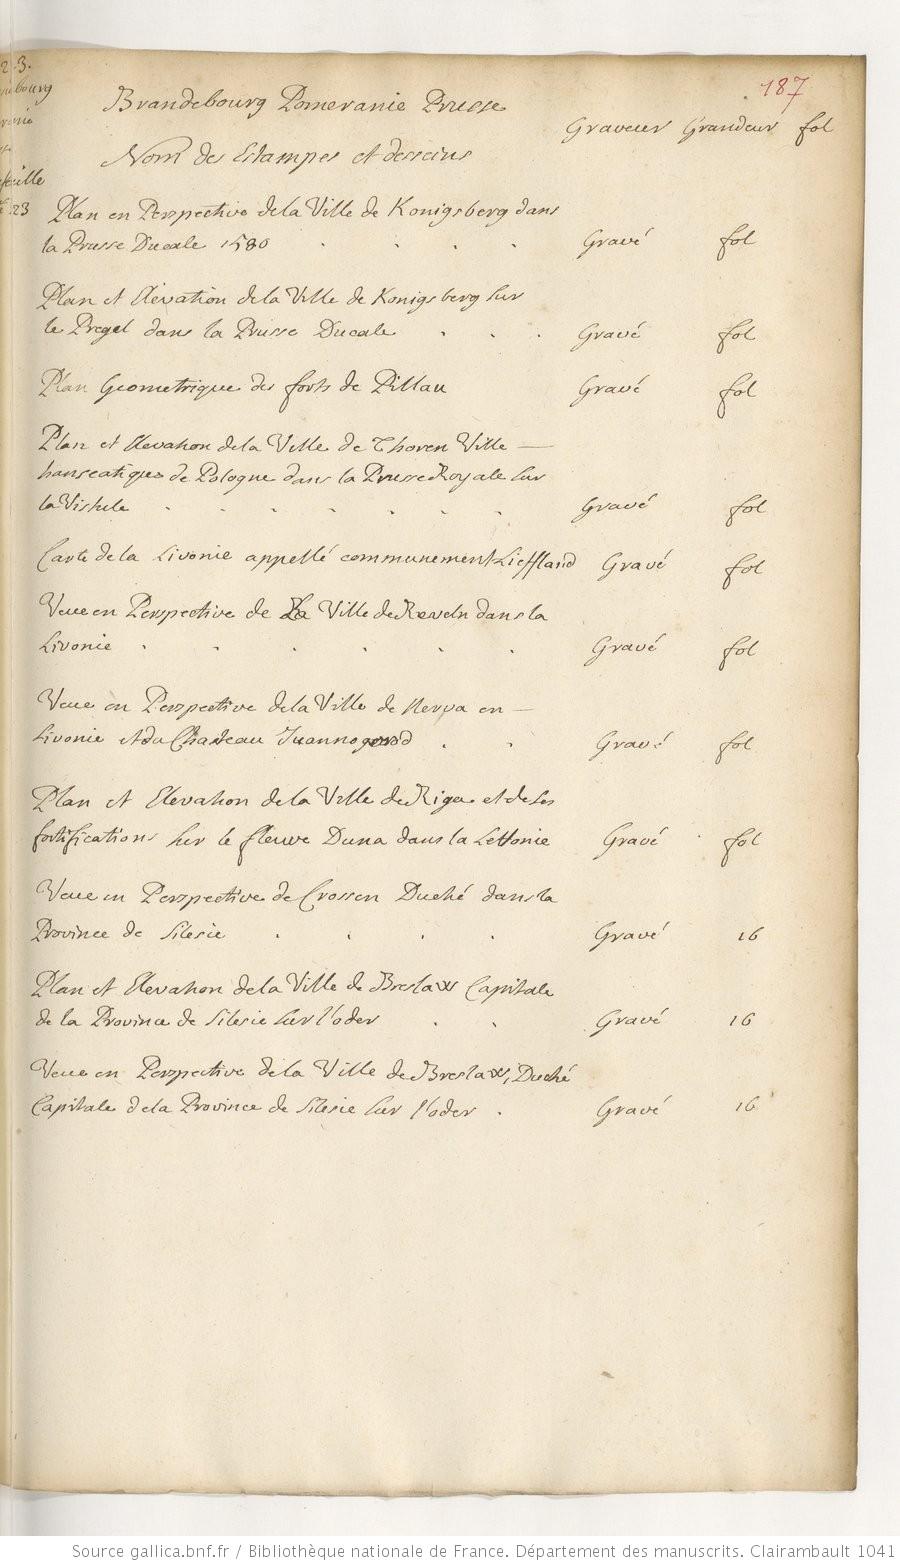 187
Brandebourg Pomeranie Prusse
Graveur Grandeur fol
Nom des Estampes et desseins
Plan en Perspective de la Ville de Konigsberg dans
la Prusse Ducale 1580 . . . . Gravé fol
Plan et Elevation de la Ville de Konigsberg sur
le Pregel dans la Prusse Ducale . . . Gravé fol
Plan Geometrique des forts de Pillau Gravé fol
Plan et Elevation de la Ville de Thoren Ville —
hanseatique de Pologne dans la Prusse Royale sur
la Vistule . . . . . . . Gravé fol
Carte de la Livonie appellé communement Lieffland Gravé fol
Veue en Perspective de La Ville de Reveln dans la
Livonie . . . . . . Gravé fol
Veue en Perspective de la Ville de Nerva en —
Livonie et du Chasteau Juannogorod . . Gravé fol
Plan et Elevation de la Ville de Riga et de ses
fortifications sur le fleuve Duna dans la Lettonie Gravé fol
Veue en Perspective de Crossen Duché dans la
Province de Silesie . . . . Gravé 16
Plan et Elevation de la Ville de Breslaw Capitale
de la Province de Silesie sur l'oder . . Gravé 16
Veue en Perspective de la Ville de Breslaw, Duché
Capitale de la Province de Silesie sur l'oder . Gravé 16
Source gallica.bnf.fr / Bibliothèque nationale de France. Département des manuscrits. Clairambault 1041